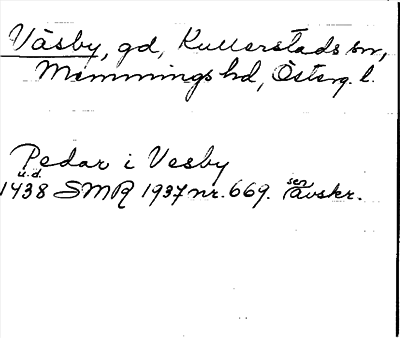 Väsby, gd, Kullerstads sn,
Memmings hd, Österg. l.
Pedar i Vesby
u.d.
1438 SMR 1937 nr. 669. sen avskr.